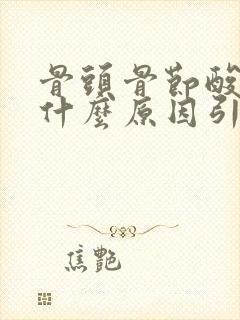 骨頭骨節酸
什麼原因引
焦艷